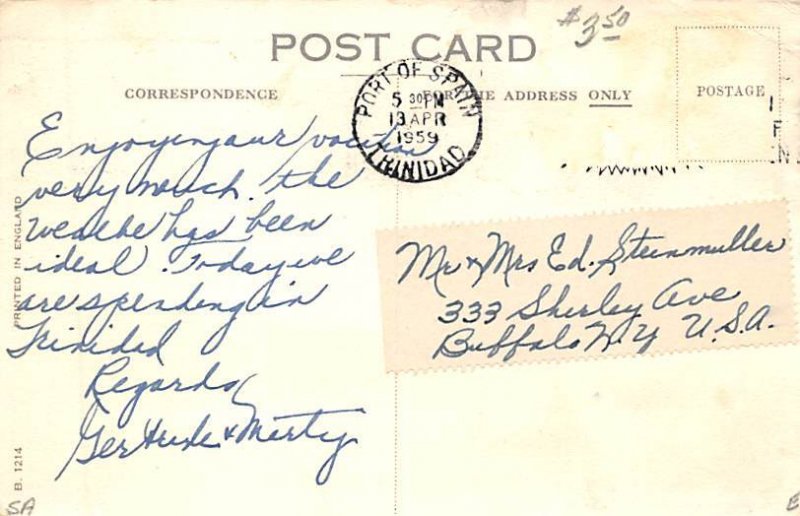 $3.50
POST CARD
CORRESPONDENCE
FOR THE ADDRESS ONLY
POSTAGE
PORT OF SPAIN
5 30 PM
13 APR
1959
TRINIDAD
Enjoying our vacation
very much. the
weathe has been
ideal. Today we
are spending in
Trinidad
Regards
Gertrude & Marty
Mr & Mrs Ed. Steinmuller
333 Sherley Ave
Buffalo N.Y U.S.A.
PRINTED IN ENGLAND
B. 1214
SA
E